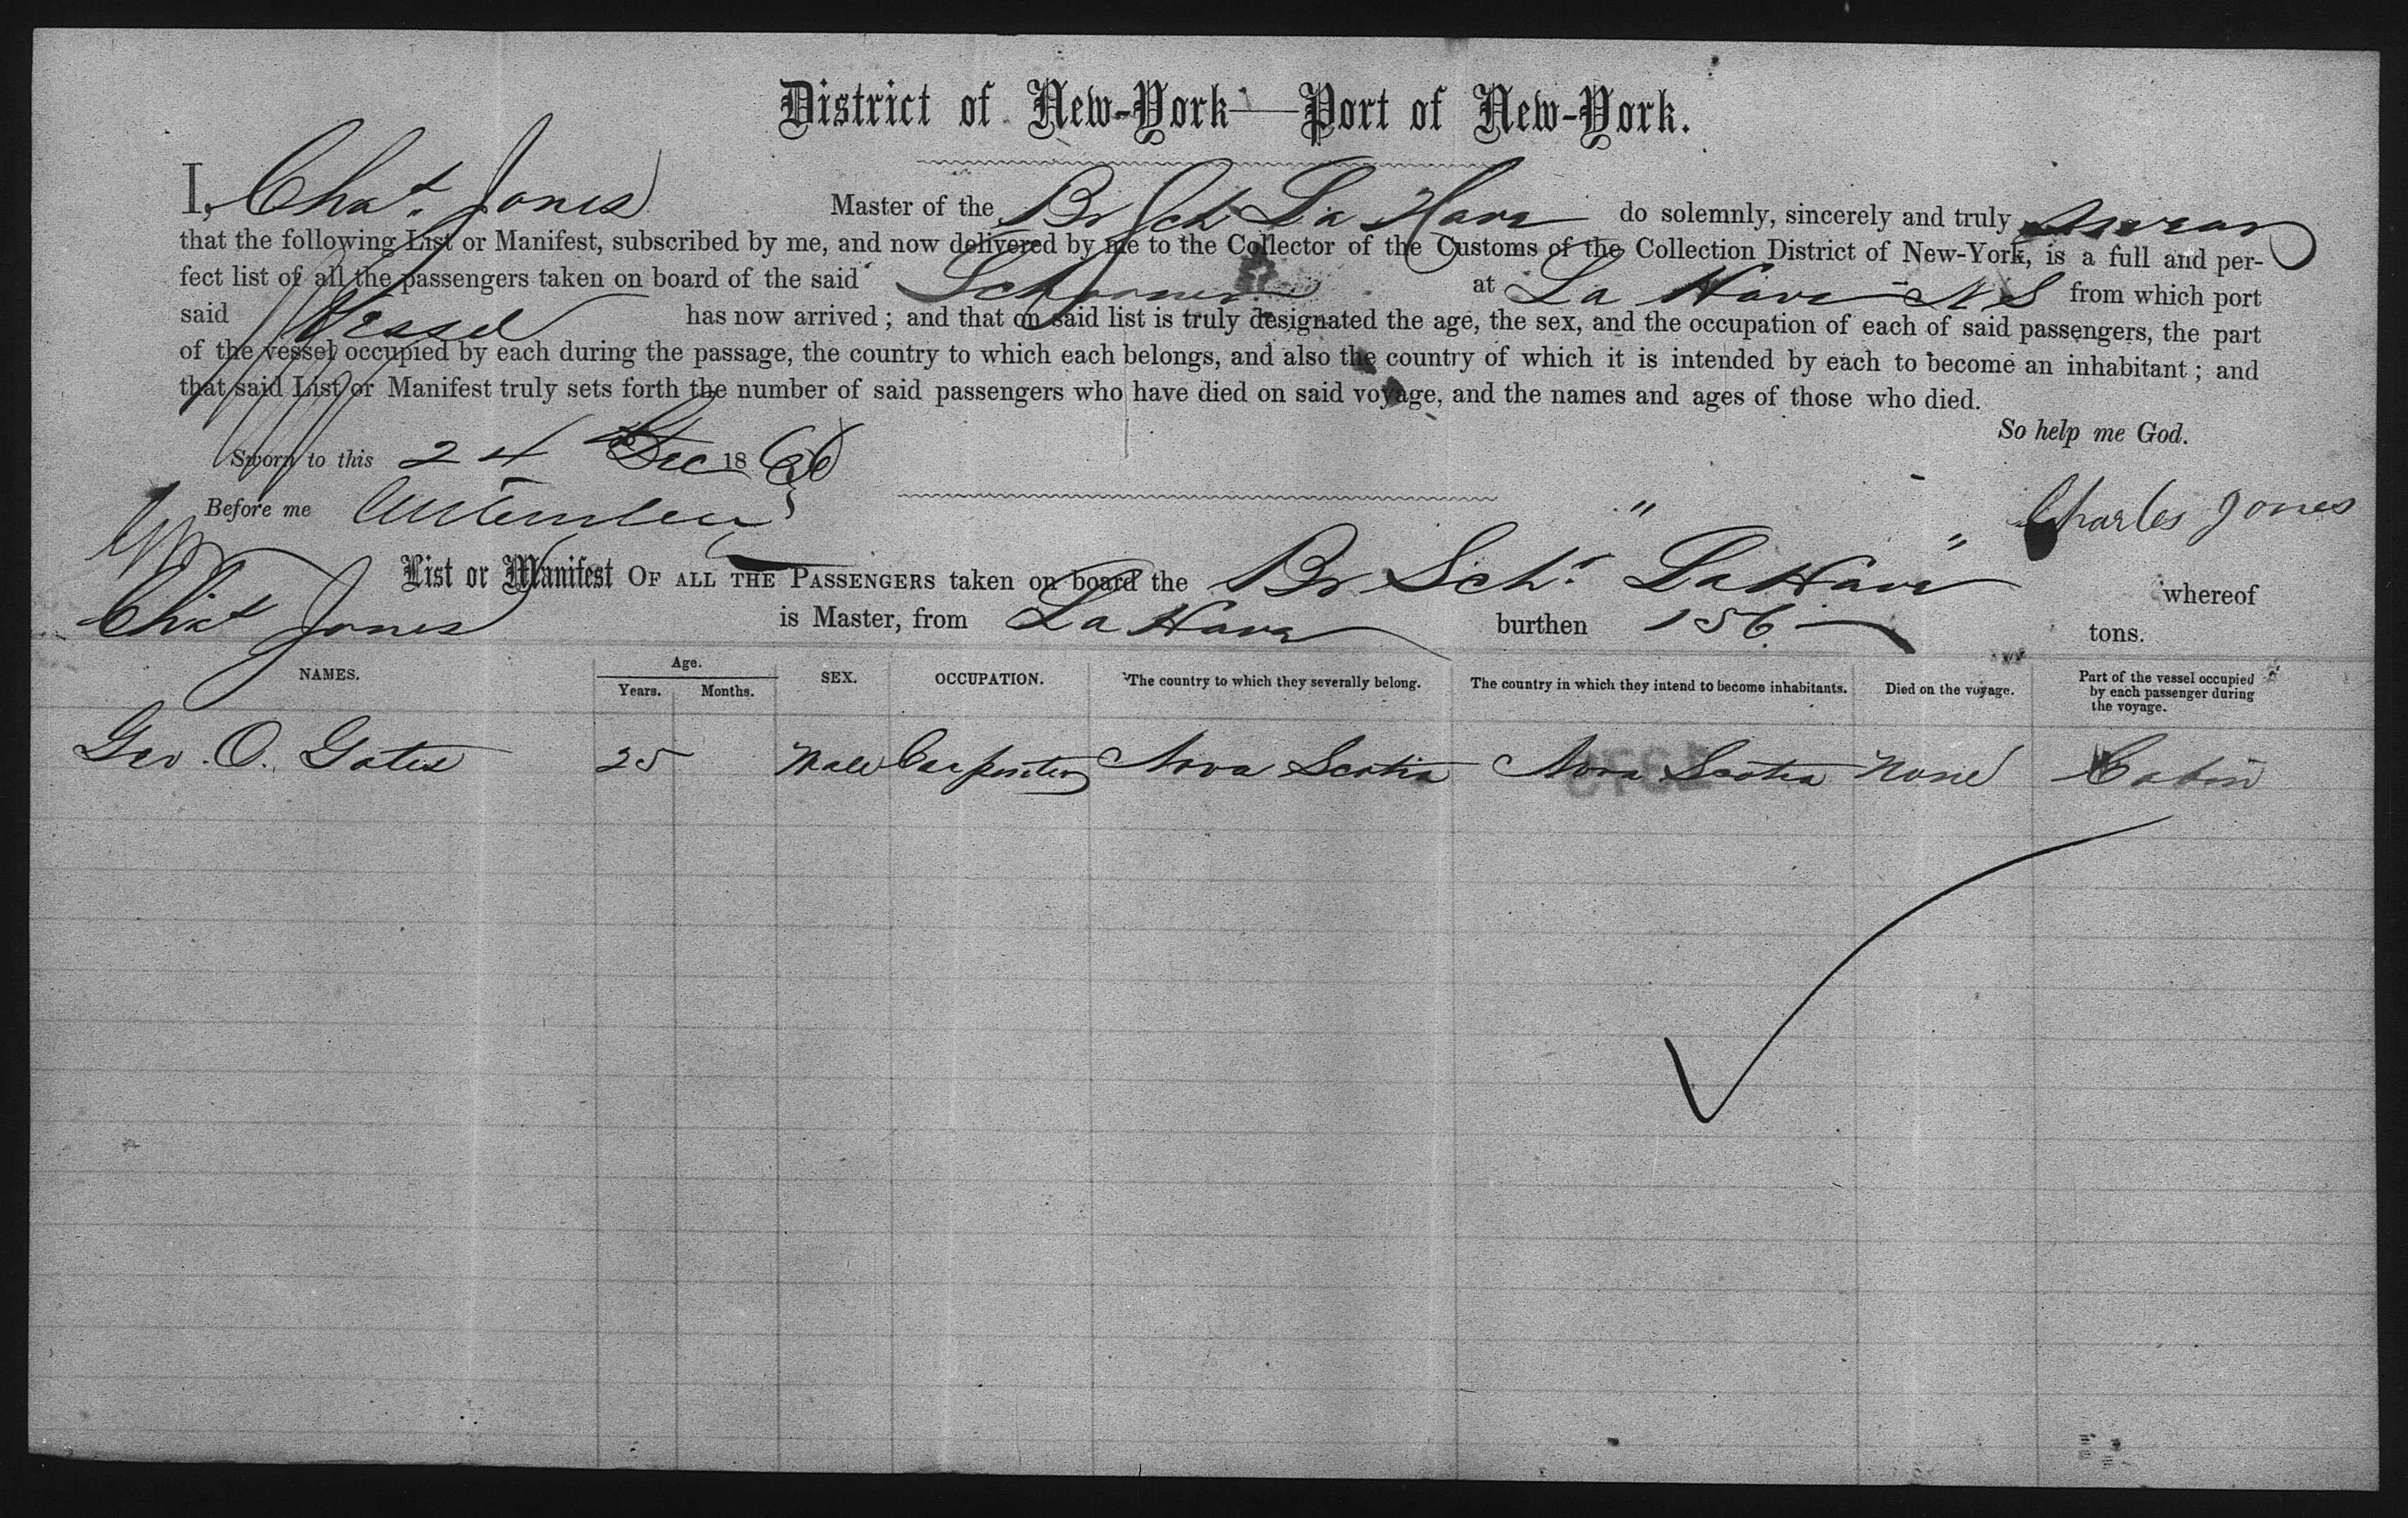 District of New-York—Port of New-York.
I, Chas. Jones Master of the Br Sch La Have do solemnly, sincerely and truly swear
that the following List or Manifest, subscribed by me, and now delivered by me to the Collector of the Customs of the Collection District of New-York, is a full and per-
fect list of all the passengers taken on board of the said Schooner at La Have N S from which port
said Vessel has now arrived; and that on said list is truly designated the age, the sex, and the occupation of each of said passengers, the part
of the vessel occupied by each during the passage, the country to which each belongs, and also the country of which it is intended by each to become an inhabitant; and
that said List or Manifest truly sets forth the number of said passengers who have died on said voyage, and the names and ages of those who died.
So help me God.
Sworn to this 24 Dec 1866
Before me
Charles Jones
List or Manifest OF ALL THE PASSENGERS taken on board the Br Schr "La Have" whereof
Chas Jones is Master, from La Have burthen 156 tons.
NAMES. Age. Years. Months. SEX. OCCUPATION. The country to which they severally belong. The country in which they intend to become inhabitants. Died on the voyage. Part of the vessel occupied by each passenger during the voyage.
Geo. O. Gates 25 Male Carpenter Nova Scotia Nova Scotia None Cabin